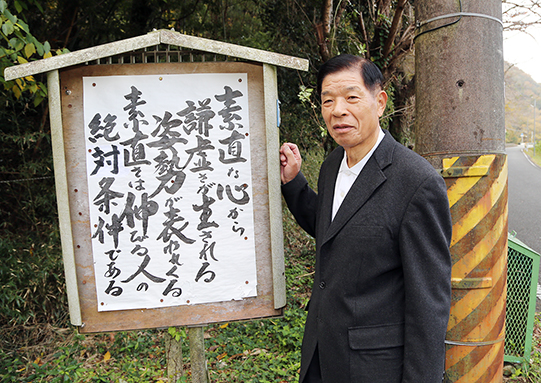 素直な心から
謙虚さが生される
姿勢が表れてくる
素直さは伸びる人の
絶対条件である